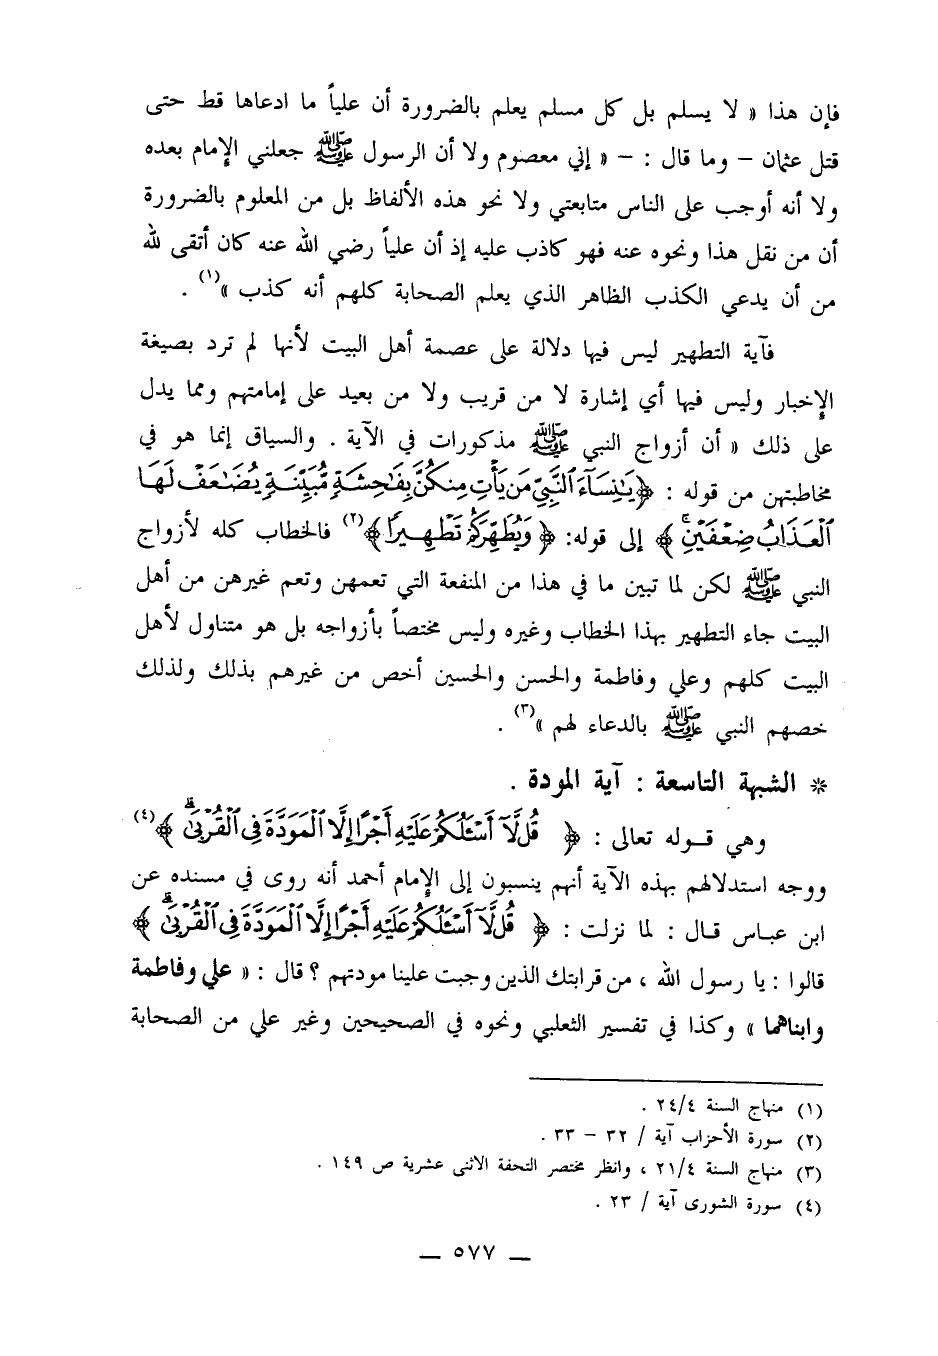 فإن هذا « لا يسلم بل كل مسلم يعلم بالضرورة أن علياً ما ادعاها قط حتى
قتل عثمان – وما قال : – « إني معصوم ولا أن الرسول ﷺ جعلني الإمام بعده
ولا أنه أوجب على الناس متابعتي ولا نحو هذه الألفاظ بل من المعلوم بالضرورة
أن من نقل هذا ونحوه عنه فهو كاذب عليه إذ أن علياً رضي الله عنه كان أتقى لله
من أن يدعي الكذب الظاهر الذي يعلم الصحابة كلهم أنه كذب »(١) .
فآية التطهير ليس فيها دلالة على عصمة أهل البيت لأنها لم ترد بصيغة
الإخبار وليس فيها أي إشارة لا من قريب ولا من بعيد على إمامتهم ومما يدل
على ذلك « أن أزواج النبي ﷺ مذكورات في الآية . والسياق إنما هو في
مخاطبتهن من قوله : ﴿ يَٰنِسَآءَ ٱلنَّبِيِّ مَن يَأْتِ مِنكُنَّ بِفَٰحِشَةٍ مُّبَيِّنَةٍ يُضَٰعَفْ لَهَا
ٱلْعَذَابُ ضِعْفَيْنِ ﴾ إلى قوله: ﴿ وَيُطَهِّرَكُمْ تَطْهِيرًا ﴾(٢) فالخطاب كله لأزواج
النبي ﷺ لكن لما تبين ما في هذا من المنفعة التي تعمهن وتعم غيرهن من أهل
البيت جاء التطهير بهذا الخطاب وغيره وليس مختصاً بأزواجه بل هو متناول لأهل
البيت كلهم وعلي وفاطمة والحسن والحسين أخص من غيرهم بذلك ولذلك
خصهم النبي ﷺ بالدعاء لهم »(٣) .
* الشبهة التاسعة : آية المودة .
وهي قوله تعالى : ﴿ قُل لَّآ أَسْـَٔلُكُمْ عَلَيْهِ أَجْرًا إِلَّا ٱلْمَوَدَّةَ فِى ٱلْقُرْبَىٰ ﴾(٤)
ووجه استدلالهم بهذه الآية أنهم ينسبون إلى الإمام أحمد أنه روى في مسنده عن
ابن عباس قال : لما نزلت : ﴿ قُل لَّآ أَسْـَٔلُكُمْ عَلَيْهِ أَجْرًا إِلَّا ٱلْمَوَدَّةَ فِى ٱلْقُرْبَىٰ ﴾
قالوا : يا رسول الله ، من قرابتك الذين وجبت علينا مودتهم ؟ قال : « علي وفاطمة
وابناهما » وكذا في تفسير الثعلبي ونحوه في الصحيحين وغير علي من الصحابة
(١) منهاج السنة ٢٤/٤ .
(٢) سورة الأحزاب آية / ٣٢ – ٣٣ .
(٣) منهاج السنة ٢١/٤ ، وانظر مختصر التحفة الاثنى عشرية ص ١٤٩ .
(٤) سورة الشورى آية / ٢٣ .
— ٥٧٧ —